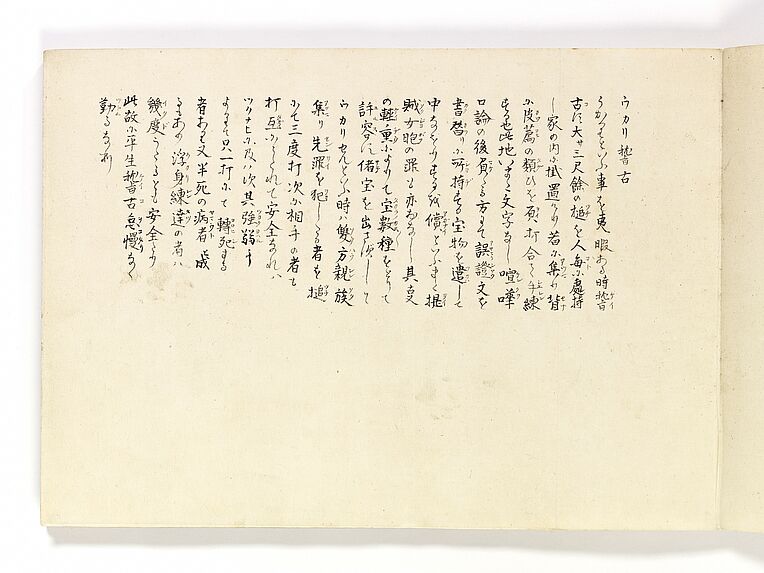 ウカリ稽古
うかりといふ事を夷暇ある時稽
古に大サ三尺餘の槌を人毎に處持
し家の内に掛置たり若に集り背
に皮蓆の類ひを負打合て手練
する也此地いまた文字なし喧嘩
口論の後負たる方より誤證文を
書替りに所持する宝物を遣して
申なをりするを償といふまた掟
賊女犯の罪も亦おなし其
の軽重によりて宝数種をとりて
許容に諸宝を出さすして
ウカリせんといふ時ハ雙方親族
集り先罪を犯したる者を槌
にて三度打次に相手の者も
打互にうたれて安全なれハ
ツクナヒに及ハす其強弱
よりて只一打にて轉死する
者あり又半死の病者と成
もあり浮身練達の者ハ
幾度うたるとも安全たり
此故に平生稽古怠慢なく
勤るなり